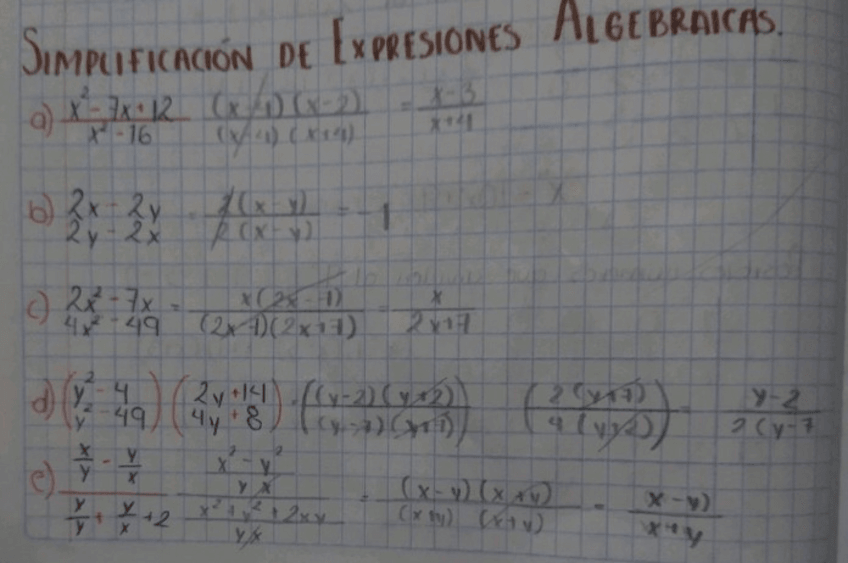 SIMPLIFICACIÓN DE EXPRESIONES ALGEBRAICAS.
a) (x² - 7x + 12)/(x² - 16) ((x-4)(x-3))/((x-4)(x+4)) = (x-3)/(x+4)
b) (2x - 2y)/(2y - 2x) = (2(x-y))/(2(x-y)) = -1
c) (2x² - 7x)/(4x² - 49) = (x(2x-7))/((2x-7)(2x+7)) = x/(2x+7)
d) ((y² - 4)/(y² - 49)) ((2y + 14)/(4y + 8)) = (((y-2)(y+2))/((y-7)(y+7))) ((2(y+7))/(4(y+2))) = (y-2)/(2(y-7
e) (x/y - y/x)/(x/y + y/x + 2) ((x² - y²)/(yx))/((x² + y² + 2xy)/(yx)) = ((x-y)(x+y))/((x+y)(x+y)) = (x-y)/(x+y)